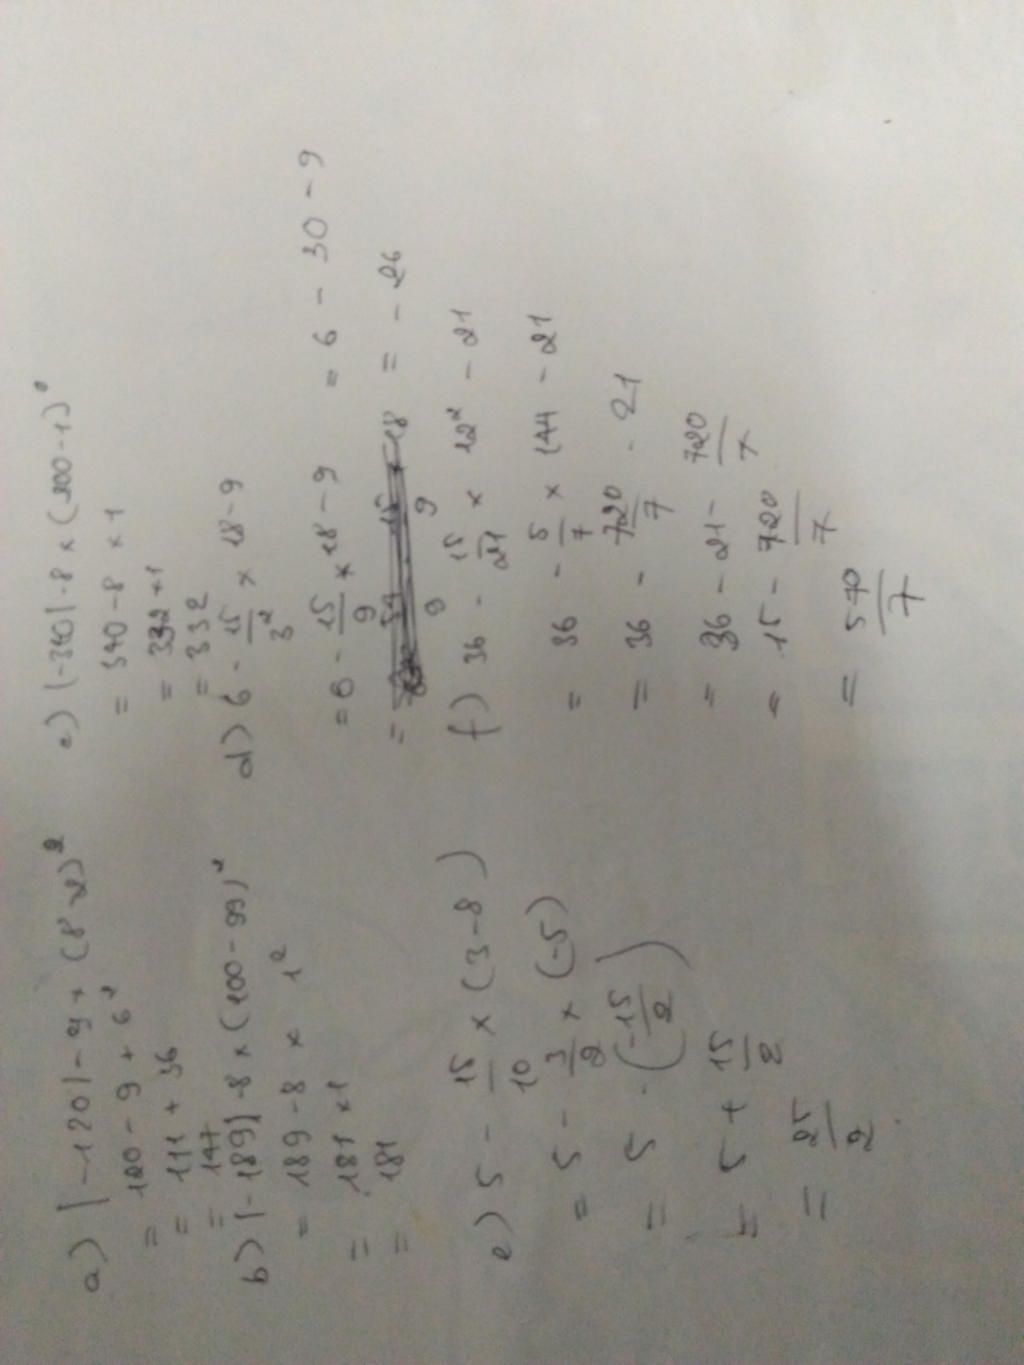 a) |-120| - 9 + (8-2)²
= 120 - 9 + 6²
= 111 + 36
= 147
b) |-189| - 8 × (100 - 99)²
= 189 - 8 × 1²
= 181 × 1
= 181
e) 5 - 15/10 × (3 - 8)
= 5 - 3/2 × (-5)
= 5 - (-15/2)
= 5 + 15/2
= 25/2
c) |-340| - 8 × (200 - 1)⁰
= 340 - 8 × 1
= 332 × 1
= 332
d) 6 - 15/3² × 18 - 9
= 6 - 15/9 × 18 - 9 = 6 - 30 - 9
= - 26
f) 36 - 15/21 × 12² - 21
= 36 - 5/7 × 144 - 21
= 36 - 720/7 - 21
= 36 - 21 - 720/7
= 15 - 720/7
= 570/7